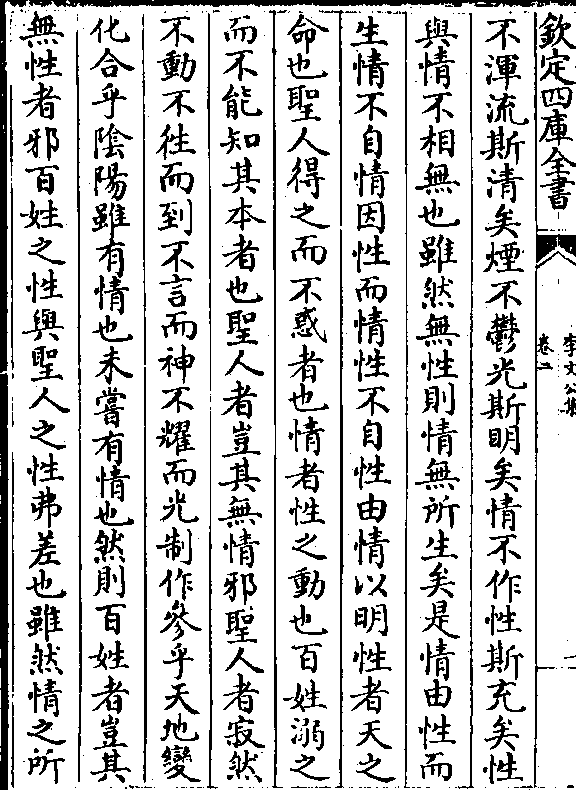 欽定四庫全書
李文公集
卷二
不渾流斯清矣煙不鬱光斯明矣情不作性斯充矣性
與情不相無也雖然無性則情無所生矣是情由性而
生情不自情因性而情性不自性由情以明性者天之
命也聖人得之而不惑者也情者性之動也百姓溺之
而不能知其本者也聖人者豈其無情邪聖人者寂然
不動不徃而到不言而神不耀而光制作參乎天地變
化合乎陰陽雖有情也未嘗有情也然則百姓者豈其
無性者邪百姓之性與聖人之性弗差也雖然情之所